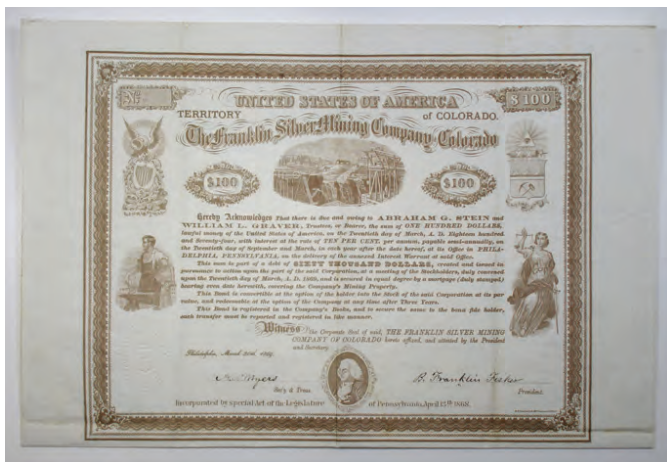 No.
$100
UNITED STATES OF AMERICA
TERRITORY of COLORADO.
The Franklin Silver Mining Company of Colorado
$100
$100
Hereby Acknowledges That there is due and owing to ABRAHAM G. STEIN and
WILLIAM L. GRAVER, Trustees, or Bearer, the sum of ONE HUNDRED DOLLARS,
lawful money of the United States of America, on the Twentieth day of March, A. D. Eighteen hundred
and Seventy-four, with interest at the rate of TEN PER CENT. per annum, payable semi-annually, on
the Twentieth day of September and March, in each year after the date hereof, at its Office in PHILA-
DELPHIA, PENNSYLVANIA, on the delivery of the annexed Interest Warrant at said Office.
This sum is part of a debt of SIXTY THOUSAND DOLLARS, created and issued in
pursuance to action upon the part of the said Corporation, at a meeting of the Stockholders, duly convened
upon the Twentieth day of March, A. D. 1869, and is secured in equal degree by a mortgage (duly stamped)
bearing even date herewith, covering the Company's Mining Property.
This Bond is convertible at the option of the holder into the Stock of the said Corporation at its par
value, and redeemable at the option of the Company at any time after Three Years.
This Bond is registered in the Company's Books, and to secure the same to the bona fide holder,
each transfer must be reported and registered in like manner.
Witness The Corporate Seal of said, THE FRANKLIN SILVER MINING
COMPANY OF COLORADO hereto affixed, and attested by the President
and Secretary.
Philadelphia, March 20th 1869.
Myers
Sec'y & Treas.
B. Franklin Fisher
President.
Incorporated by special Act of the Legislature of Pennsylvania, April 13th 1868.